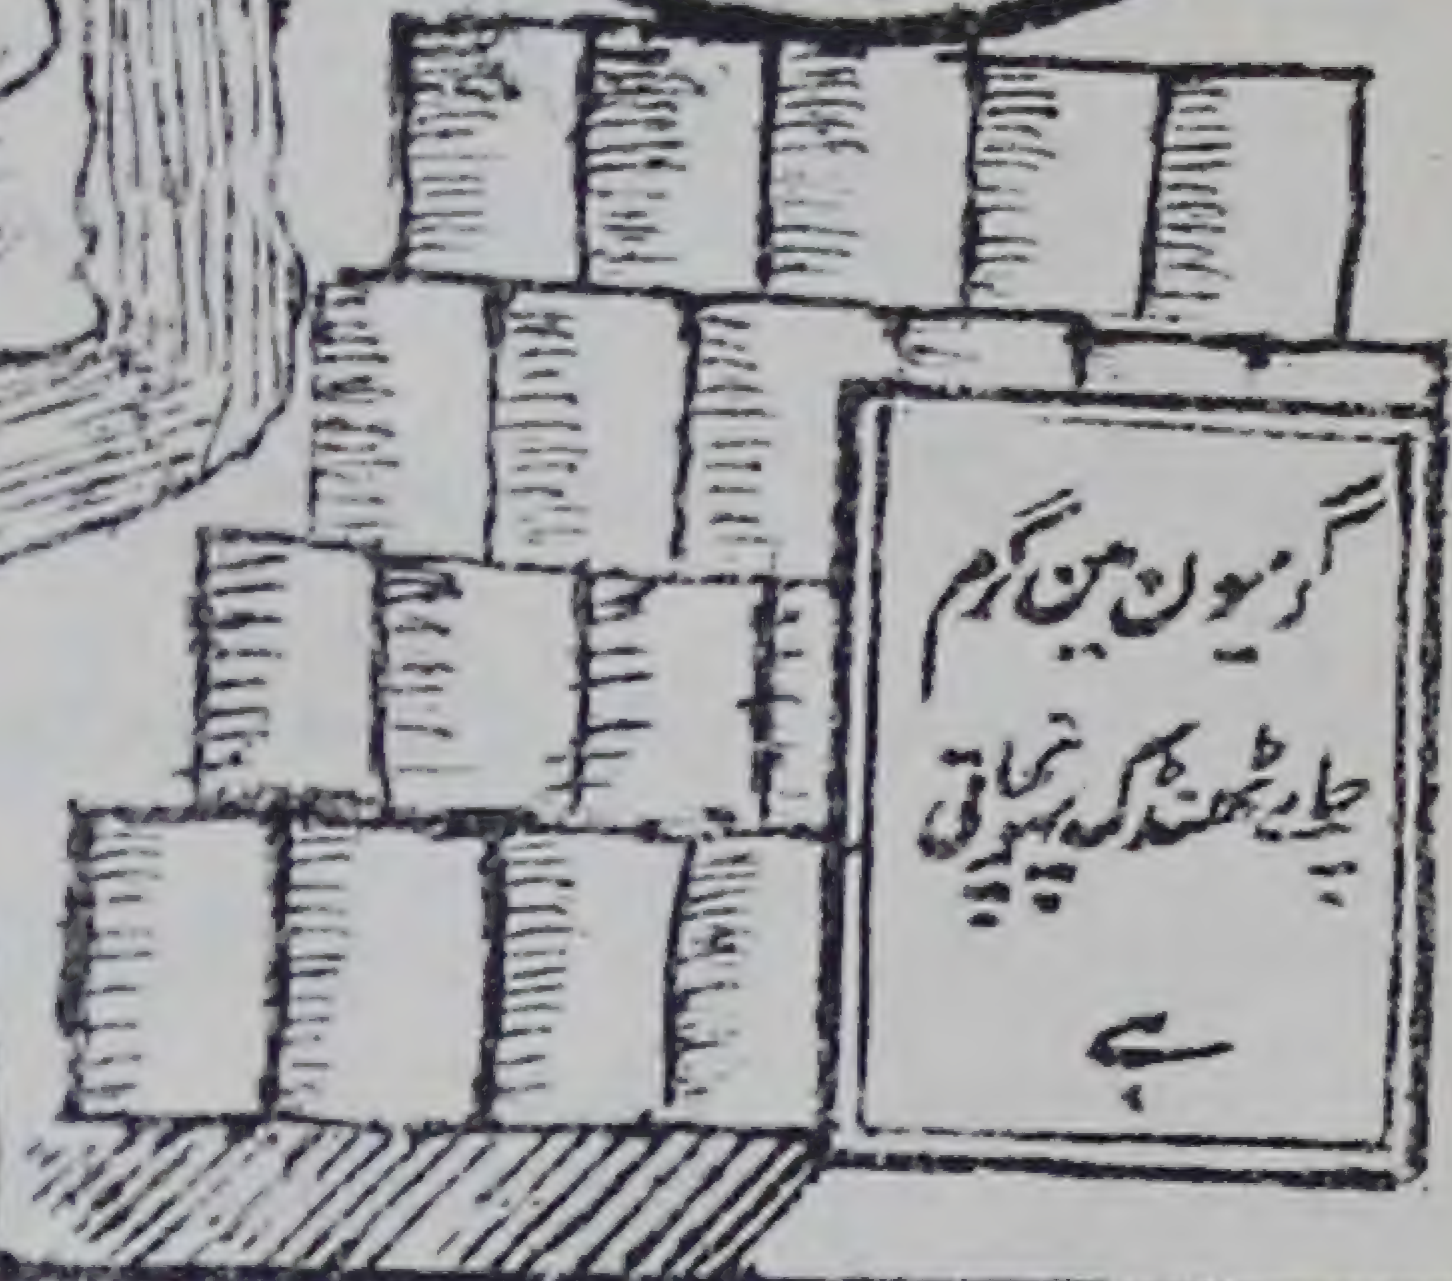 گرمیون مین گرم
چاء ٹھنڈک پہونچاتی
ہے